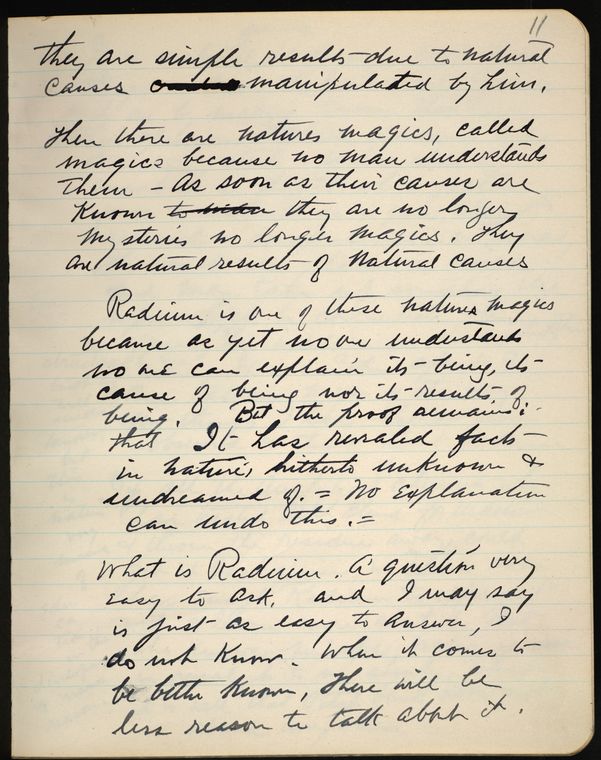 11
they are simple results due to natural
causes manipulated by him.
Then there are natures magics, called
magics because no man understands
them – As soon as their causes are
known to man they are no longer
mysteries no longer magics. They
are natural results of natural causes
Radium is one of these natures magics
because as yet no one understands
no one can explain its being, its
cause of being nor its results of
being. But the proof remains:
that It has revealed facts
in nature, hitherto unknown &
undreamed of. = No Explanation
can undo this. =
What is Radium. A question very
easy to ask, and I may say
is just as easy to answer, I
do not know. When it comes to
be better known, there will be
less reason to talk about it.